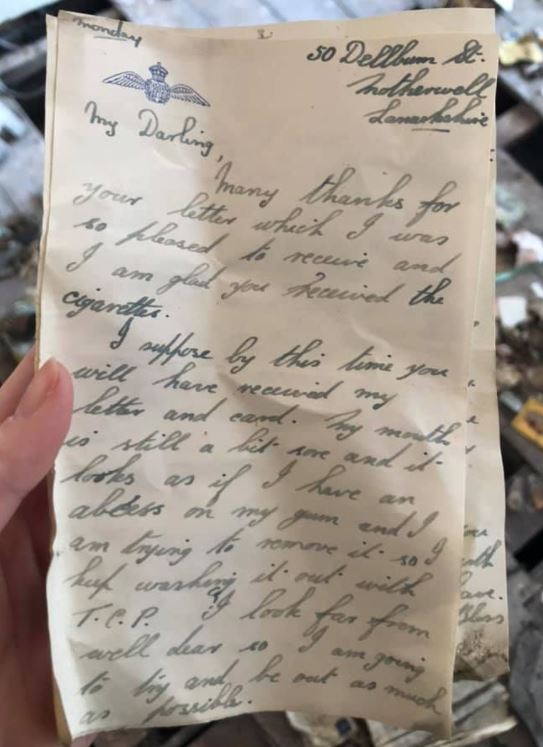 Monday
50 Dellburn St.
Motherwell
Lanarkshire
My Darling,
Many thanks for
your letter which I was
so pleased to receive and
I am glad you received the
cigarettes.
I suppose by this time you
will have received my
letter and card. My mouth
is still a bit sore and it
looks as if I have an
abcess on my gum and I
am trying to remove it so I
keep washing it out with
T.C.P. I look far from
well dear so I am going
to try and be out as much
as possible.